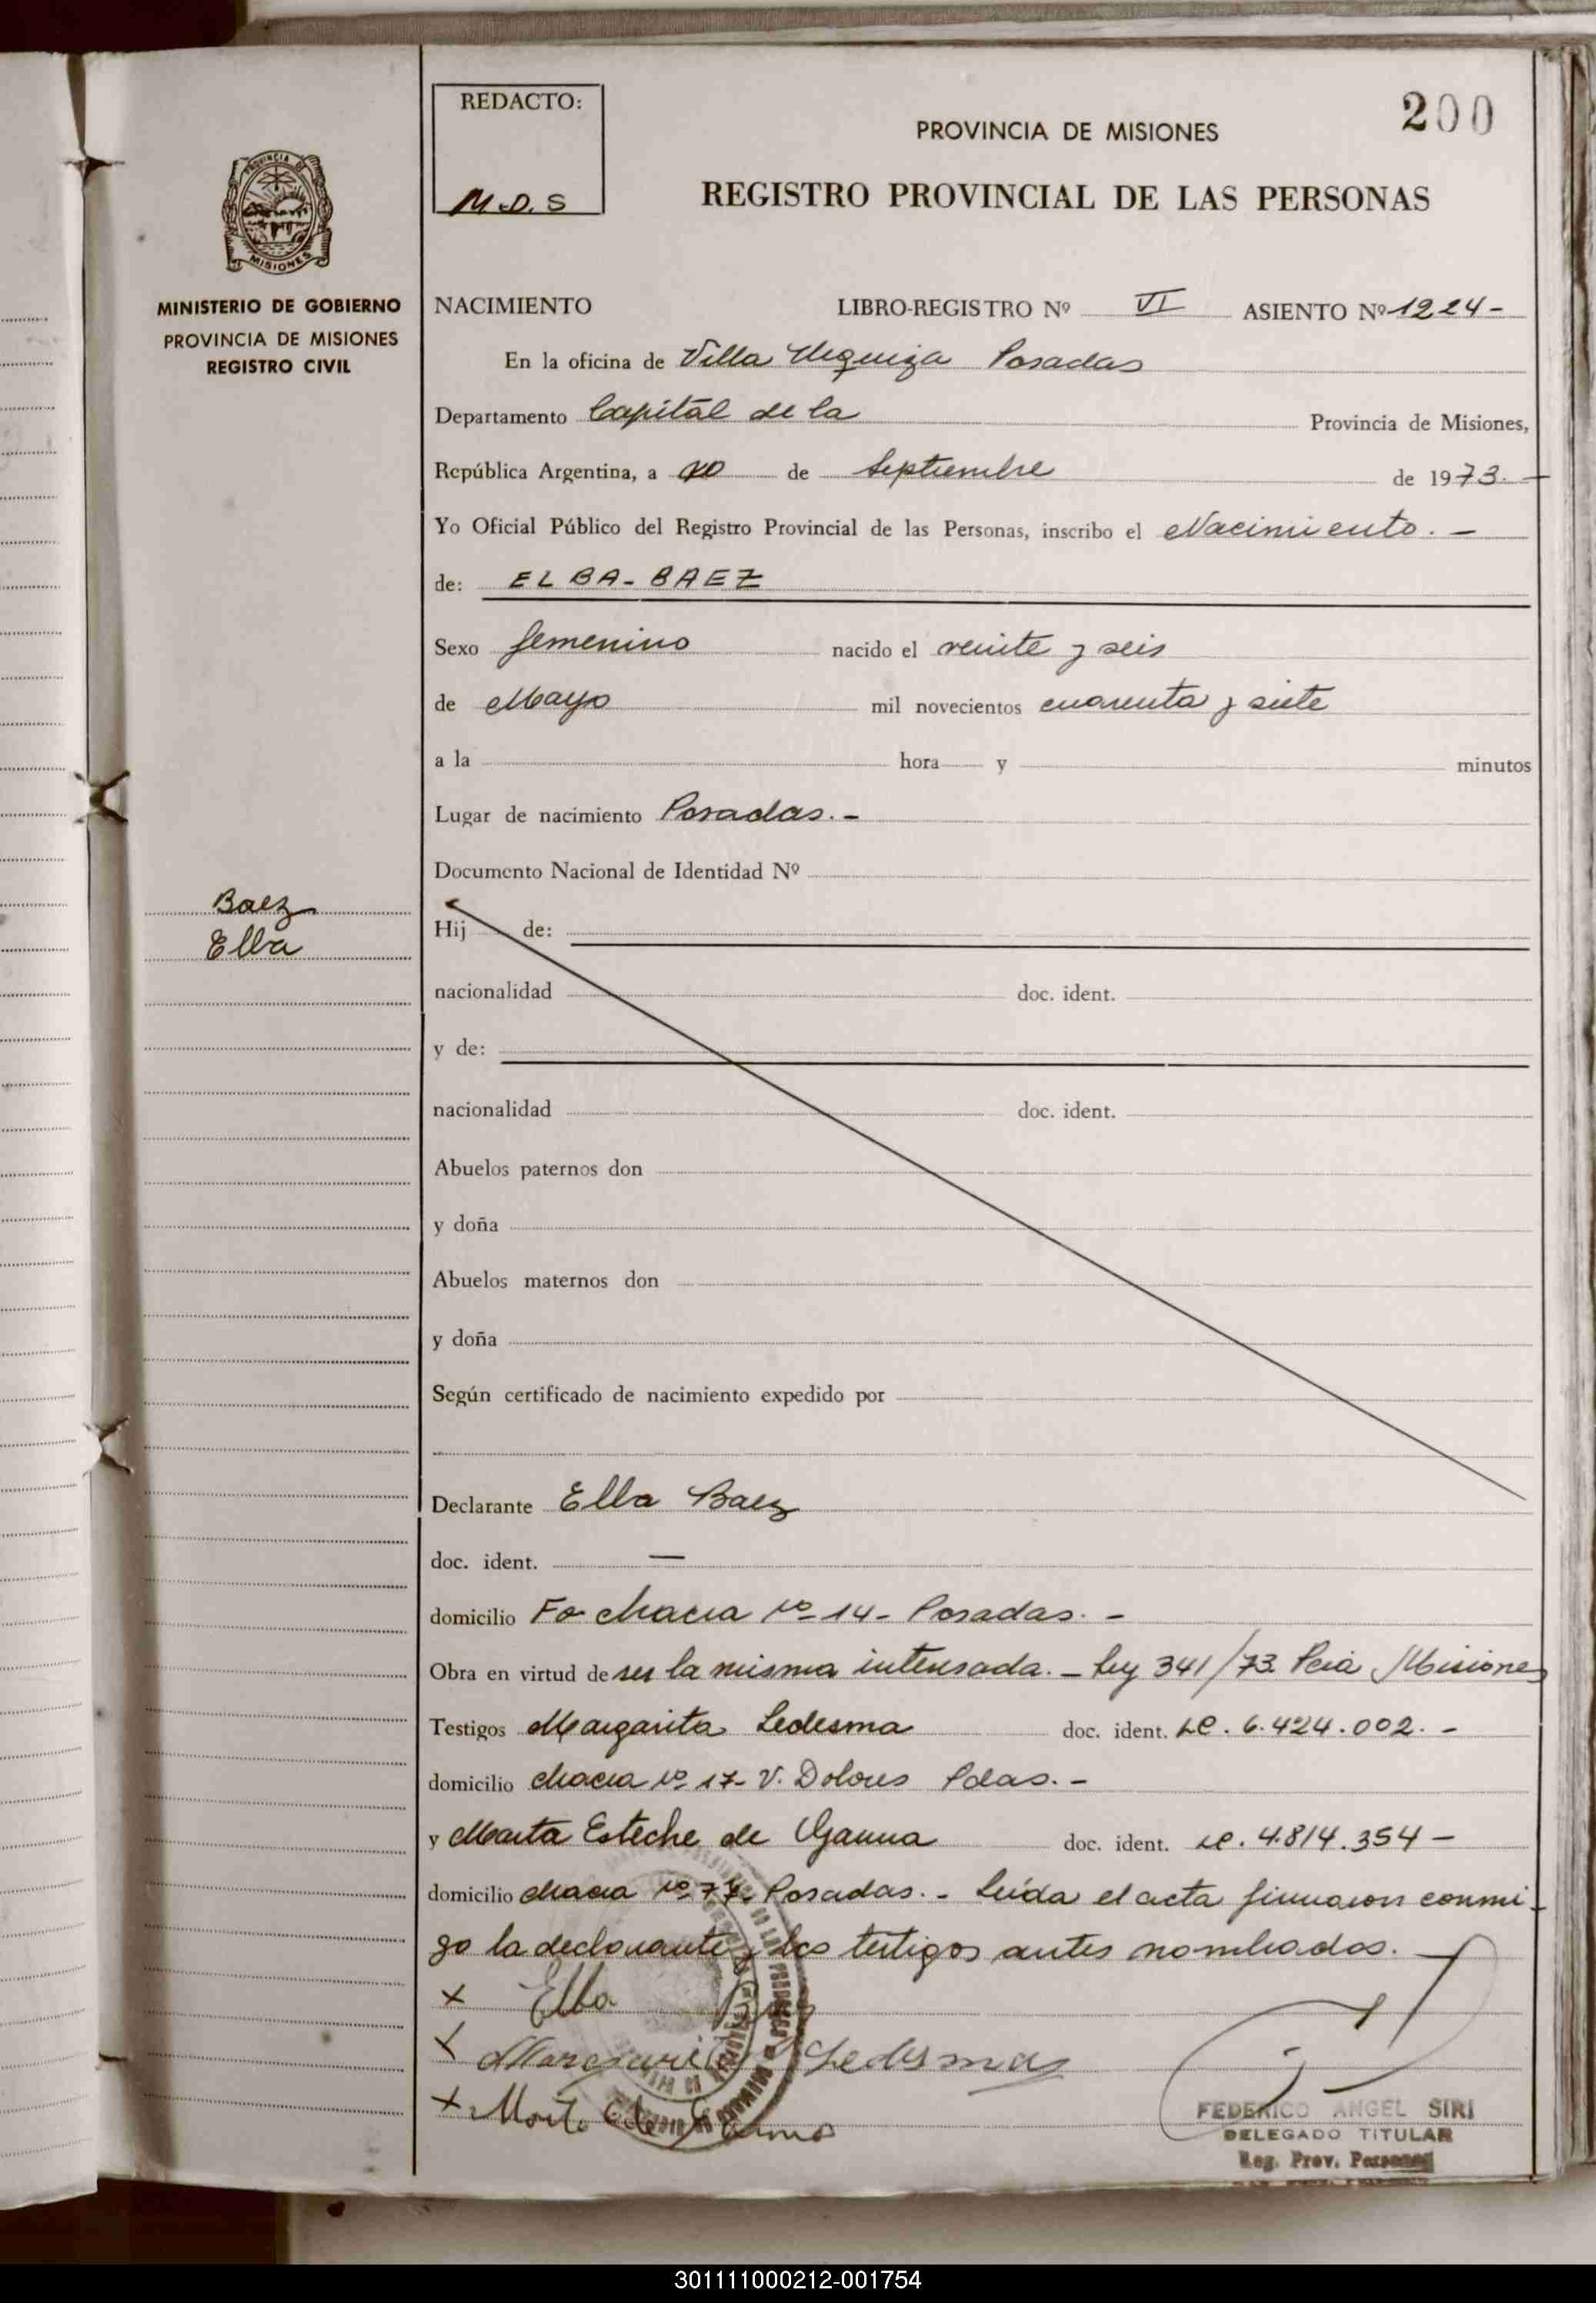 REDACTO:
M.D.S
200
PROVINCIA DE MISIONES
REGISTRO PROVINCIAL DE LAS PERSONAS
PROVINCIA DE
MISIONES
MINISTERIO DE GOBIERNO
PROVINCIA DE MISIONES
REGISTRO CIVIL
NACIMIENTO LIBRO-REGISTRO Nº VI ASIENTO Nº 1224-
En la oficina de Villa Urquiza Posadas
Departamento Capital de la Provincia de Misiones,
República Argentina, a 10 de Septiembre de 1973.-
Yo Oficial Público del Registro Provincial de las Personas, inscribo el Nacimiento.-
de: ELBA-BAEZ
Sexo femenino nacido el veinte y seis
de Mayo mil novecientos cuarenta y siete
a la hora y minutos
Lugar de nacimiento Posadas.-
Documento Nacional de Identidad Nº
Baez
Elba
Hij de:
nacionalidad doc. ident.
y de:
nacionalidad doc. ident.
Abuelos paternos don
y doña
Abuelos maternos don
y doña
Según certificado de nacimiento expedido por
Declarante Elba Baez
doc. ident. —
domicilio Fo chacra Nº 14- Posadas.-
Obra en virtud de ser la misma interesada.- Ley 341/73 Pcia Misiones
Testigos Margarita Ledesma doc. ident. LC. 6.424.002.-
domicilio chacra Nº 17- V. Dolores Pdas.-
y Marta Esteche de Gauna doc. ident. LC. 4.814.354-
domicilio chacra Nº 77- Posadas.- Leída el acta firmaron conmi-
go la declarante y los testigos antes nombrados.
x Elba
x Margarita Ledesma
x Marta E de Gauna
FEDERICO ANGEL SIRI
DELEGADO TITULAR
Reg. Prov. Personas
301111000212-001754